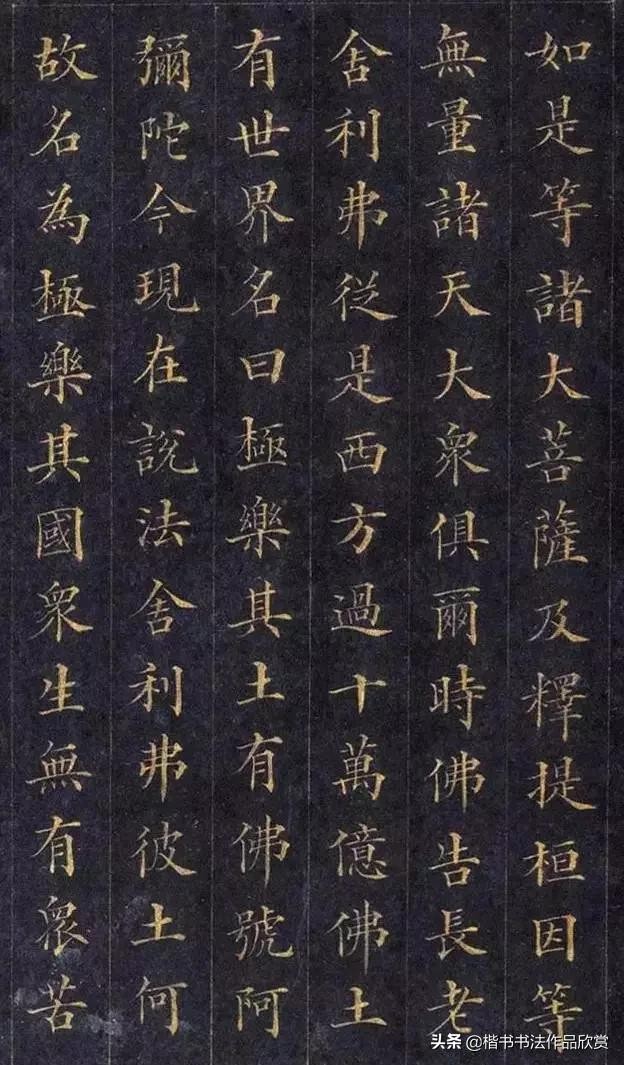 如是等諸大菩薩及釋提桓因等
無量諸天大衆俱爾時佛告長老
舍利弗從是西方過十萬億佛土
有世界名曰極樂其土有佛號阿
彌陀今現在說法舍利弗彼土何
故名為極樂其國衆生無有衆苦
头条 @楷书书法作品欣赏